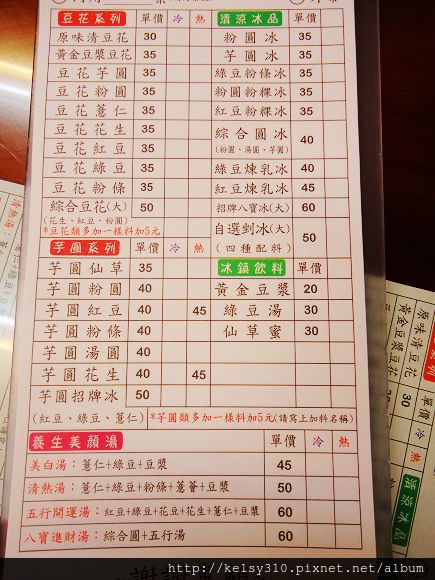 豆花系列 單價 冷 熱
原味清豆花 30
黃金豆漿豆花 35
豆花芋圓 35
豆花粉圓 35
豆花薏仁 35
豆花花生 35
豆花紅豆 35
豆花綠豆 35
豆花粉條 35
綜合豆花(大) 50
(花生、紅豆、粉圓)
*豆花類多加一樣料加5元
清涼冰品 單價
粉圓冰 35
芋圓冰 35
綠豆粉條冰 35
粉圓粉粿冰 35
紅豆粉粿冰 35
綜合圓冰 40
(粉圓、湯圓、芋圓)
綠豆煉乳冰 40
紅豆煉乳冰 45
招牌八寶冰(大) 60
自選剉冰(大) 50
(四種配料)
芋圓系列 單價 冷 熱
芋圓仙草 35
芋圓粉圓 40
芋圓紅豆 40 45
芋圓粉條 40
芋圓湯圓 40
芋圓花生 40 45
芋圓招牌冰 50
(紅豆、綠豆、薏仁)
*芋圓類多加一樣料加5元(請寫上加料名稱)
冰鎮飲料 單價
黃金豆漿 20
綠豆湯 30
仙草蜜 30
養生美顏湯 單價 冷 熱
美白湯：薏仁+綠豆+豆漿 45
清熱湯：薏仁+綠豆+粉條+薏薈+豆漿 50
五行開運湯：紅豆+綠豆+花豆+花生+薏仁+豆漿 60
八寶進財湯：綜合圓+五行湯 60
原味清豆花
黃金豆漿豆花
單價
30
清涼冰品
http://kelsy310.pixnet.net/album